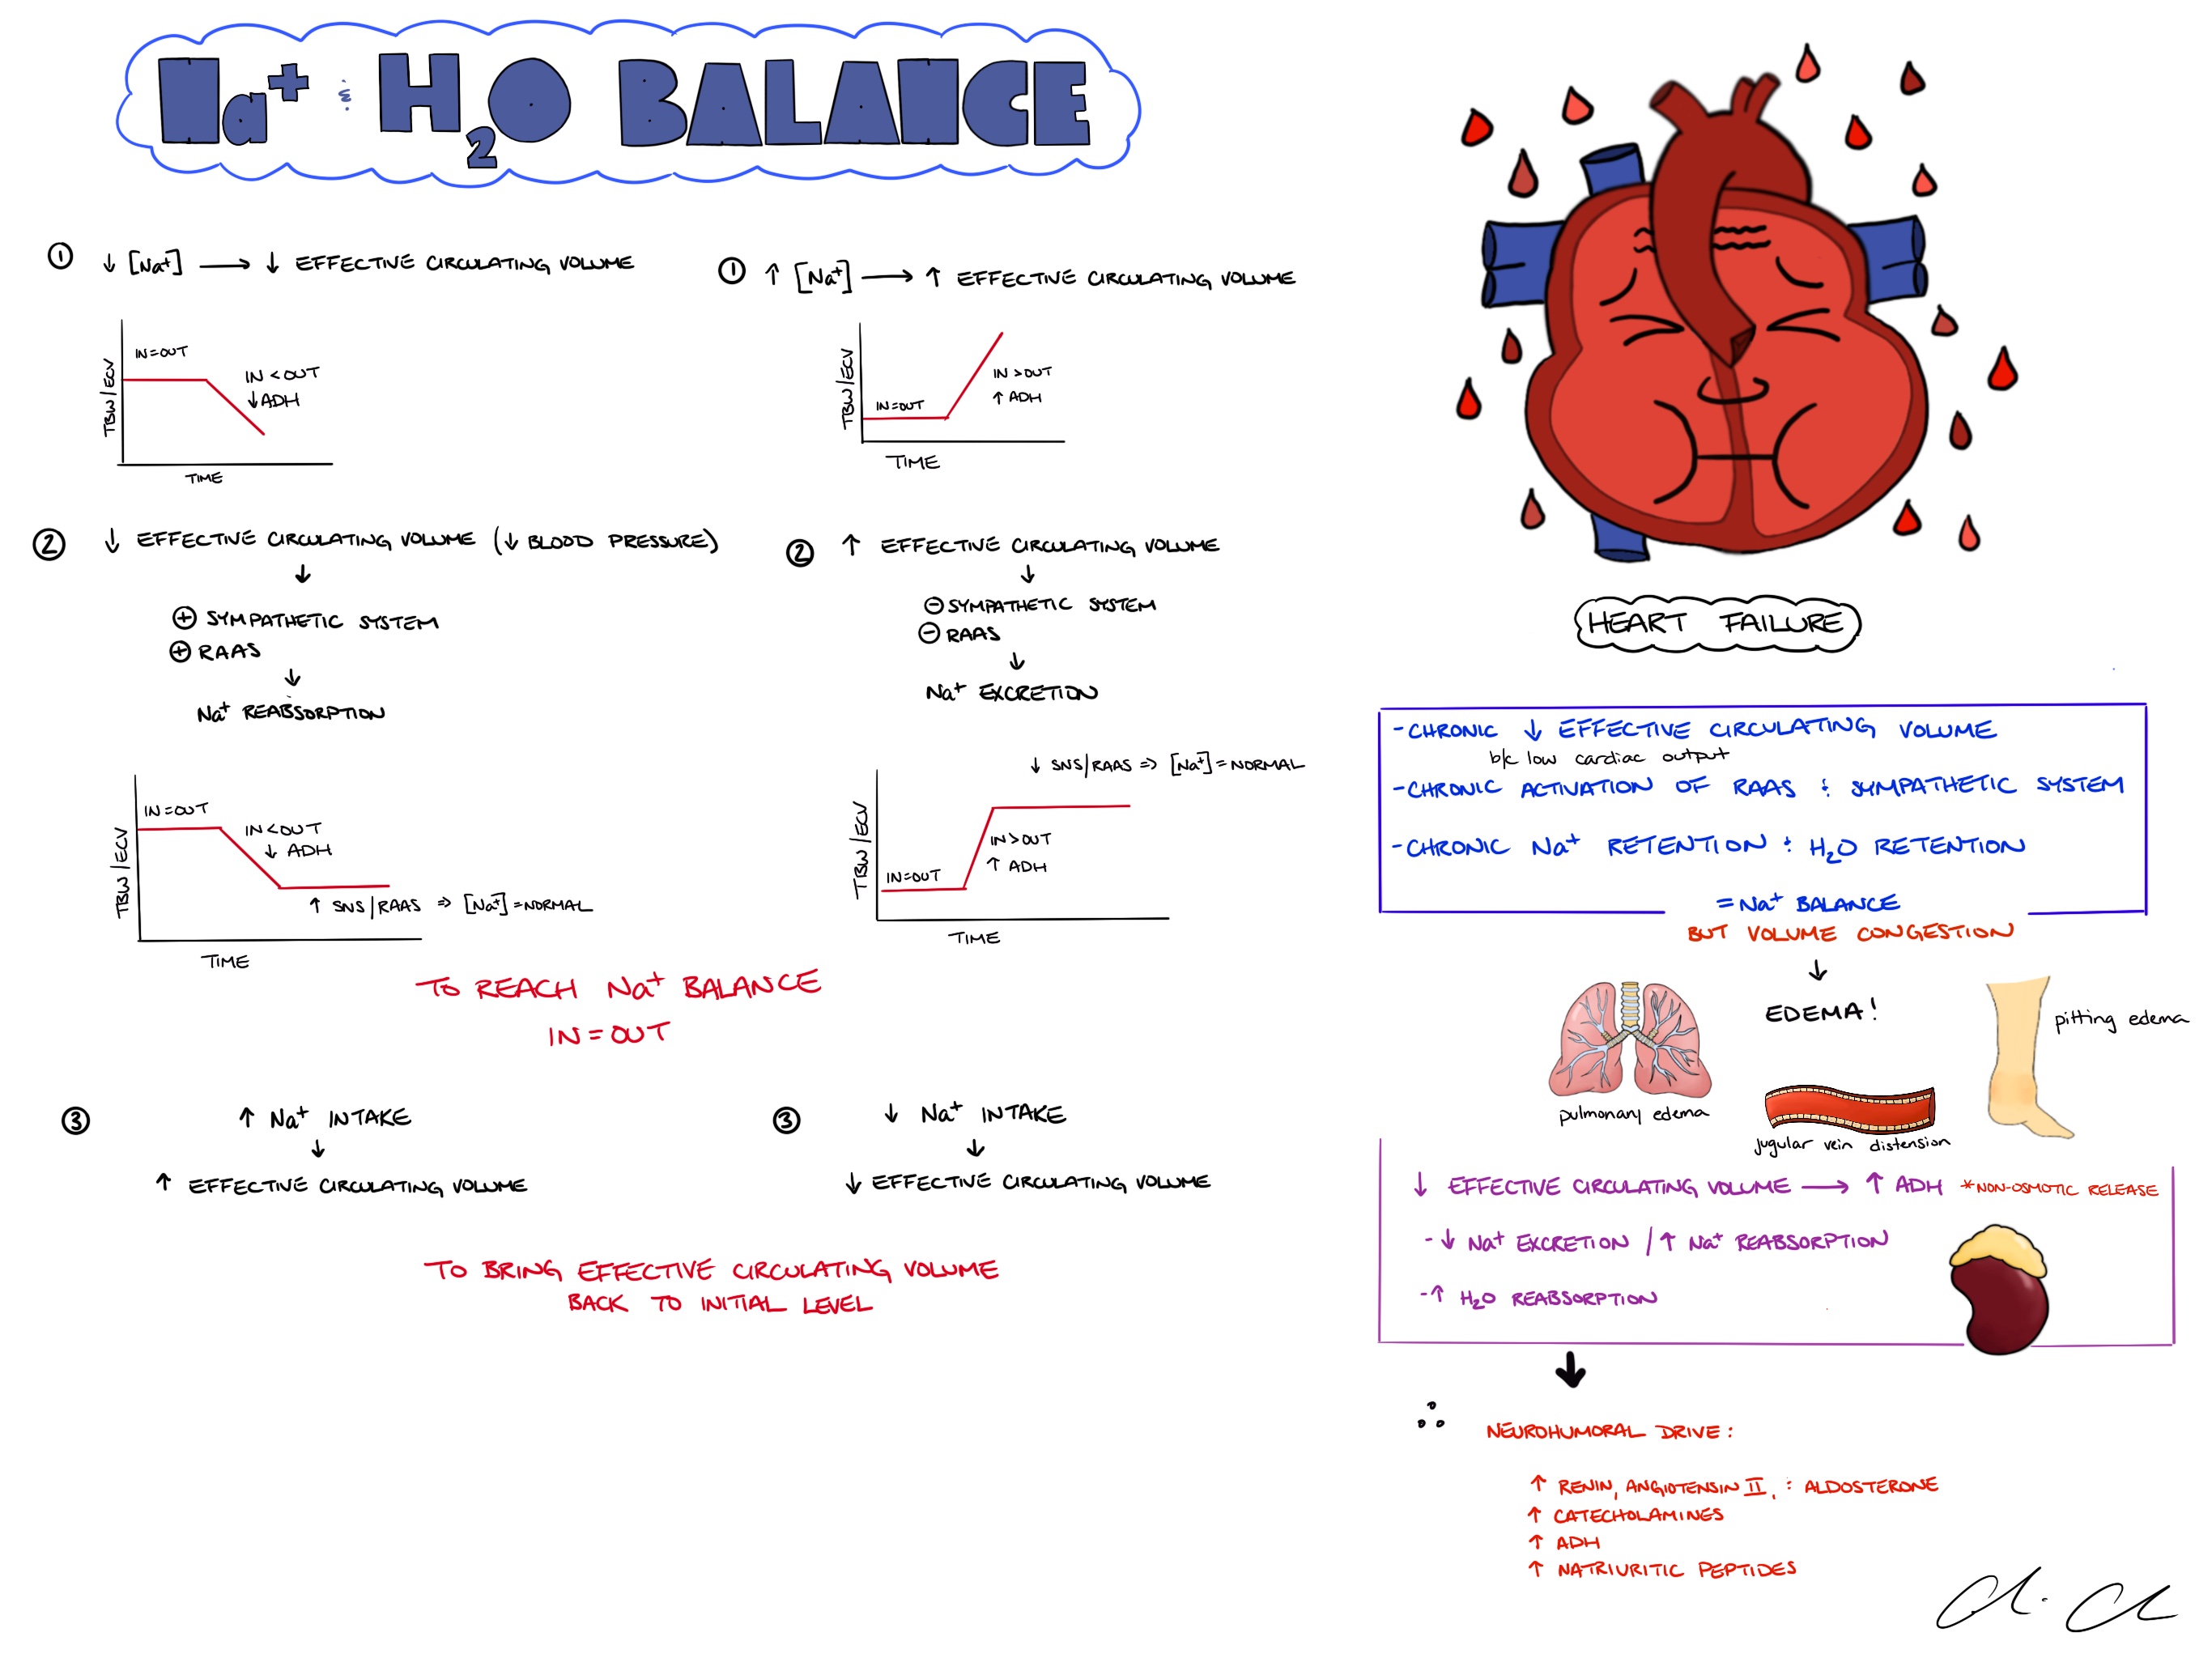 Na⁺ & H₂O BALANCE
① ↓ [Na⁺] → ↓ EFFECTIVE CIRCULATING VOLUME
TBW/ECV
IN=OUT
IN < OUT
↓ ADH
TIME
② ↓ EFFECTIVE CIRCULATING VOLUME (↓ BLOOD PRESSURE)
↓
⊕ SYMPATHETIC SYSTEM
⊕ RAAS
↓
Na⁺ REABSORPTION
TBW/ECV
IN=OUT
IN<OUT
↓ ADH
↑ SNS/RAAS => [Na⁺]=NORMAL
TIME
① ↑ [Na⁺] → ↑ EFFECTIVE CIRCULATING VOLUME
TBW/ECV
IN=OUT
IN > OUT
↑ ADH
TIME
② ↑ EFFECTIVE CIRCULATING VOLUME
↓
⊖ SYMPATHETIC SYSTEM
⊖ RAAS
↓
Na⁺ EXCRETION
↓ SNS/RAAS => [Na⁺]=NORMAL
TBW/ECV
IN=OUT
IN>OUT
↑ ADH
TIME
TO REACH Na⁺ BALANCE
IN=OUT
③ ↑ Na⁺ INTAKE
↓
↑ EFFECTIVE CIRCULATING VOLUME
③ ↓ Na⁺ INTAKE
↓
↓ EFFECTIVE CIRCULATING VOLUME
TO BRING EFFECTIVE CIRCULATING VOLUME
BACK TO INITIAL LEVEL
HEART FAILURE
- CHRONIC ↓ EFFECTIVE CIRCULATING VOLUME
b/c low cardiac output
- CHRONIC ACTIVATION OF RAAS & SYMPATHETIC SYSTEM
- CHRONIC Na⁺ RETENTION & H₂O RETENTION
= Na⁺ BALANCE
BUT VOLUME CONGESTION
↓
EDEMA!
pitting edema
pulmonary edema
jugular vein distension
↓ EFFECTIVE CIRCULATING VOLUME → ↑ ADH *NON-OSMOTIC RELEASE
- ↓ Na⁺ EXCRETION / ↑ Na⁺ REABSORPTION
- ↑ H₂O REABSORPTION
↓
∴ NEUROHUMORAL DRIVE:
↑ RENIN, ANGIOTENSIN II, & ALDOSTERONE
↑ CATECHOLAMINES
↑ ADH
↑ NATRIURITIC PEPTIDES